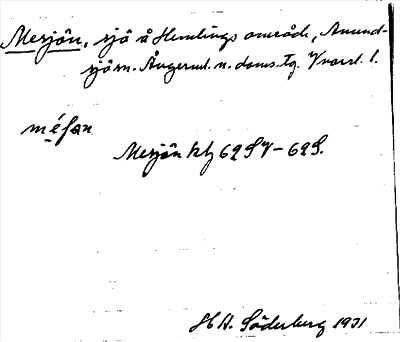 Mesjön, sjö å Hemlings område, Anund-
sjö sn. Ångerml. n. doms. tg. Västl. l.
mésan
Mesjön kbl 62SV–62S.
H A. Söderberg 1931